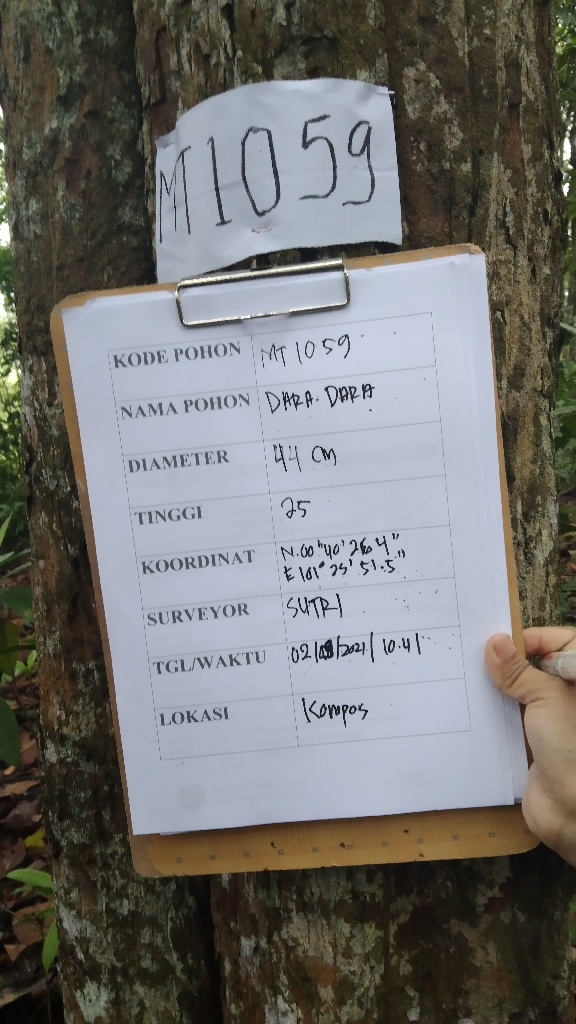 MT1059
KODE POHON MT 1059
NAMA POHON DARA-DARA
DIAMETER 44 cm
TINGGI 25
KOORDINAT N.00°40'26.4"
E 101°25'51.5"
SURVEYOR SUTRI
TGL/WAKTU /2021/ 10.41
LOKASI Kompos